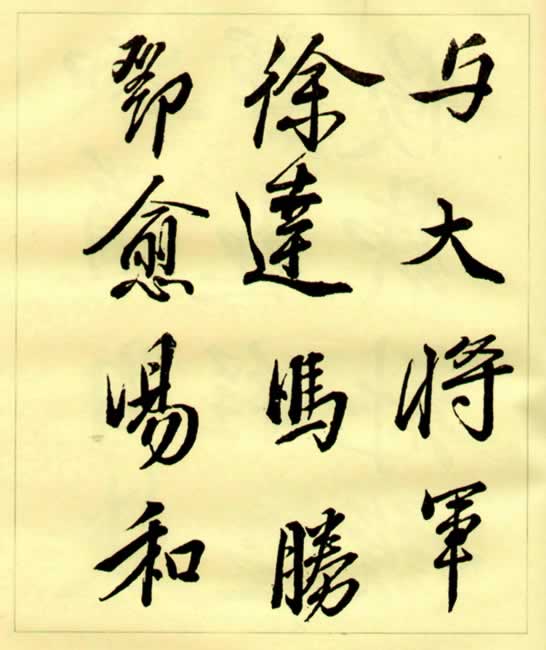 与大將軍
徐達馮勝
鄧愈湯和